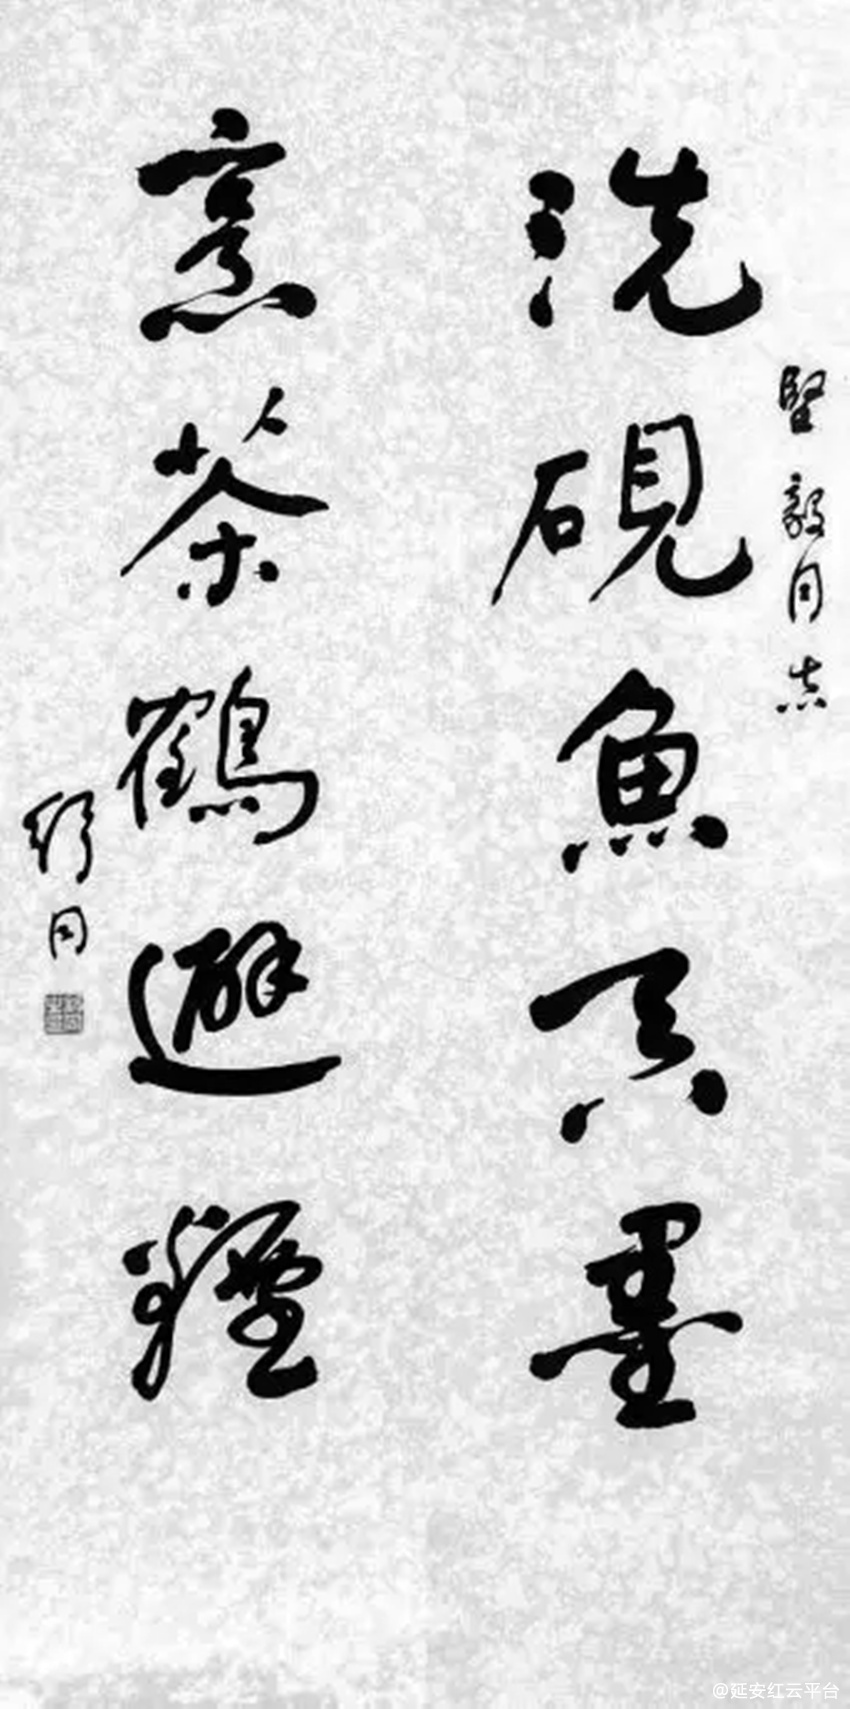 堅毅同志
洗硯魚吞墨
烹茶鶴避煙
舒同
@延安红云平台